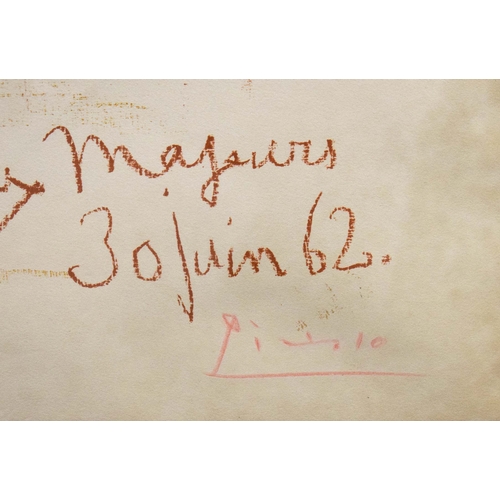 Majeurs
30 Juin 62.
Picasso